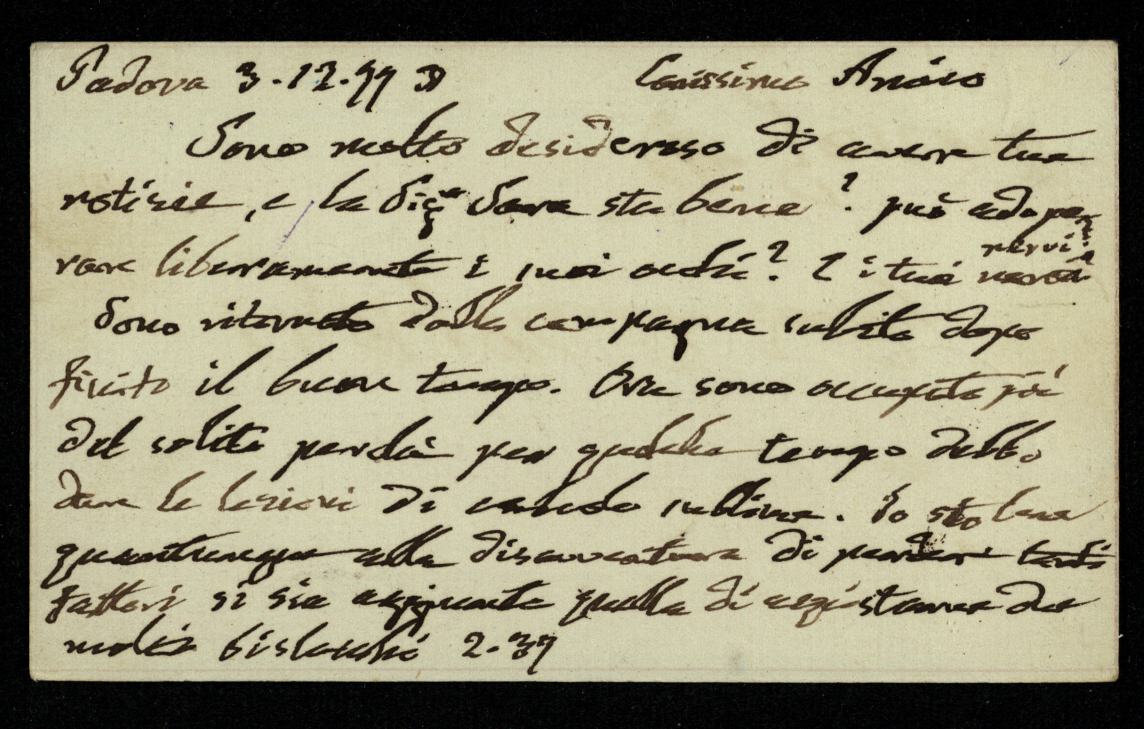 Padova 3.12.99 Carissimo Amico
Sono molto desideroso di avere tue
notizie, e la Sig.ra Sara sta bene? può adope
rare liberamente i suoi occhi? E i tuoi nervi
Sono ritornato dalla campagna subito dopo
finito il buon tempo. Ora sono occupato più
del solito perchè per qualche tempo debbo
dare le lezioni di calcolo sublime. Io sto bene
quantunque alla disavventura di perder
fattori si sia aggiunta quella di acquistarne due
molto bislacchi 2.39